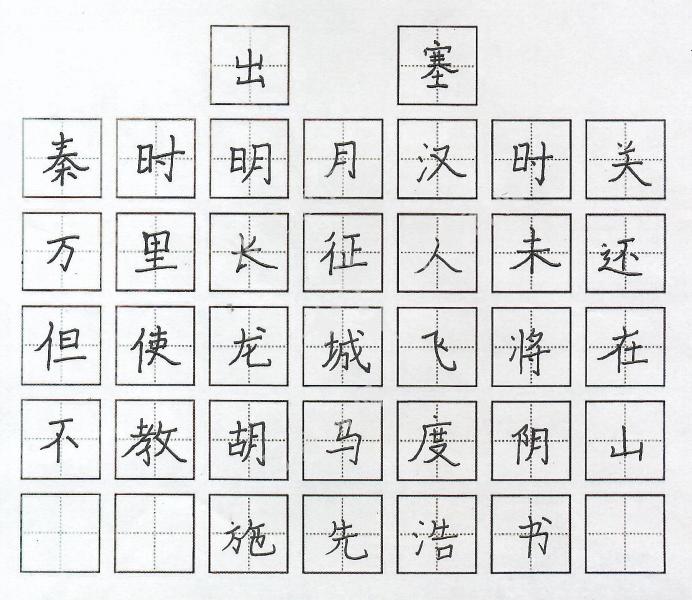 出塞
秦时明月汉时关
万里长征人未还
但使龙城飞将在
不教胡马度阴山
施先浩书